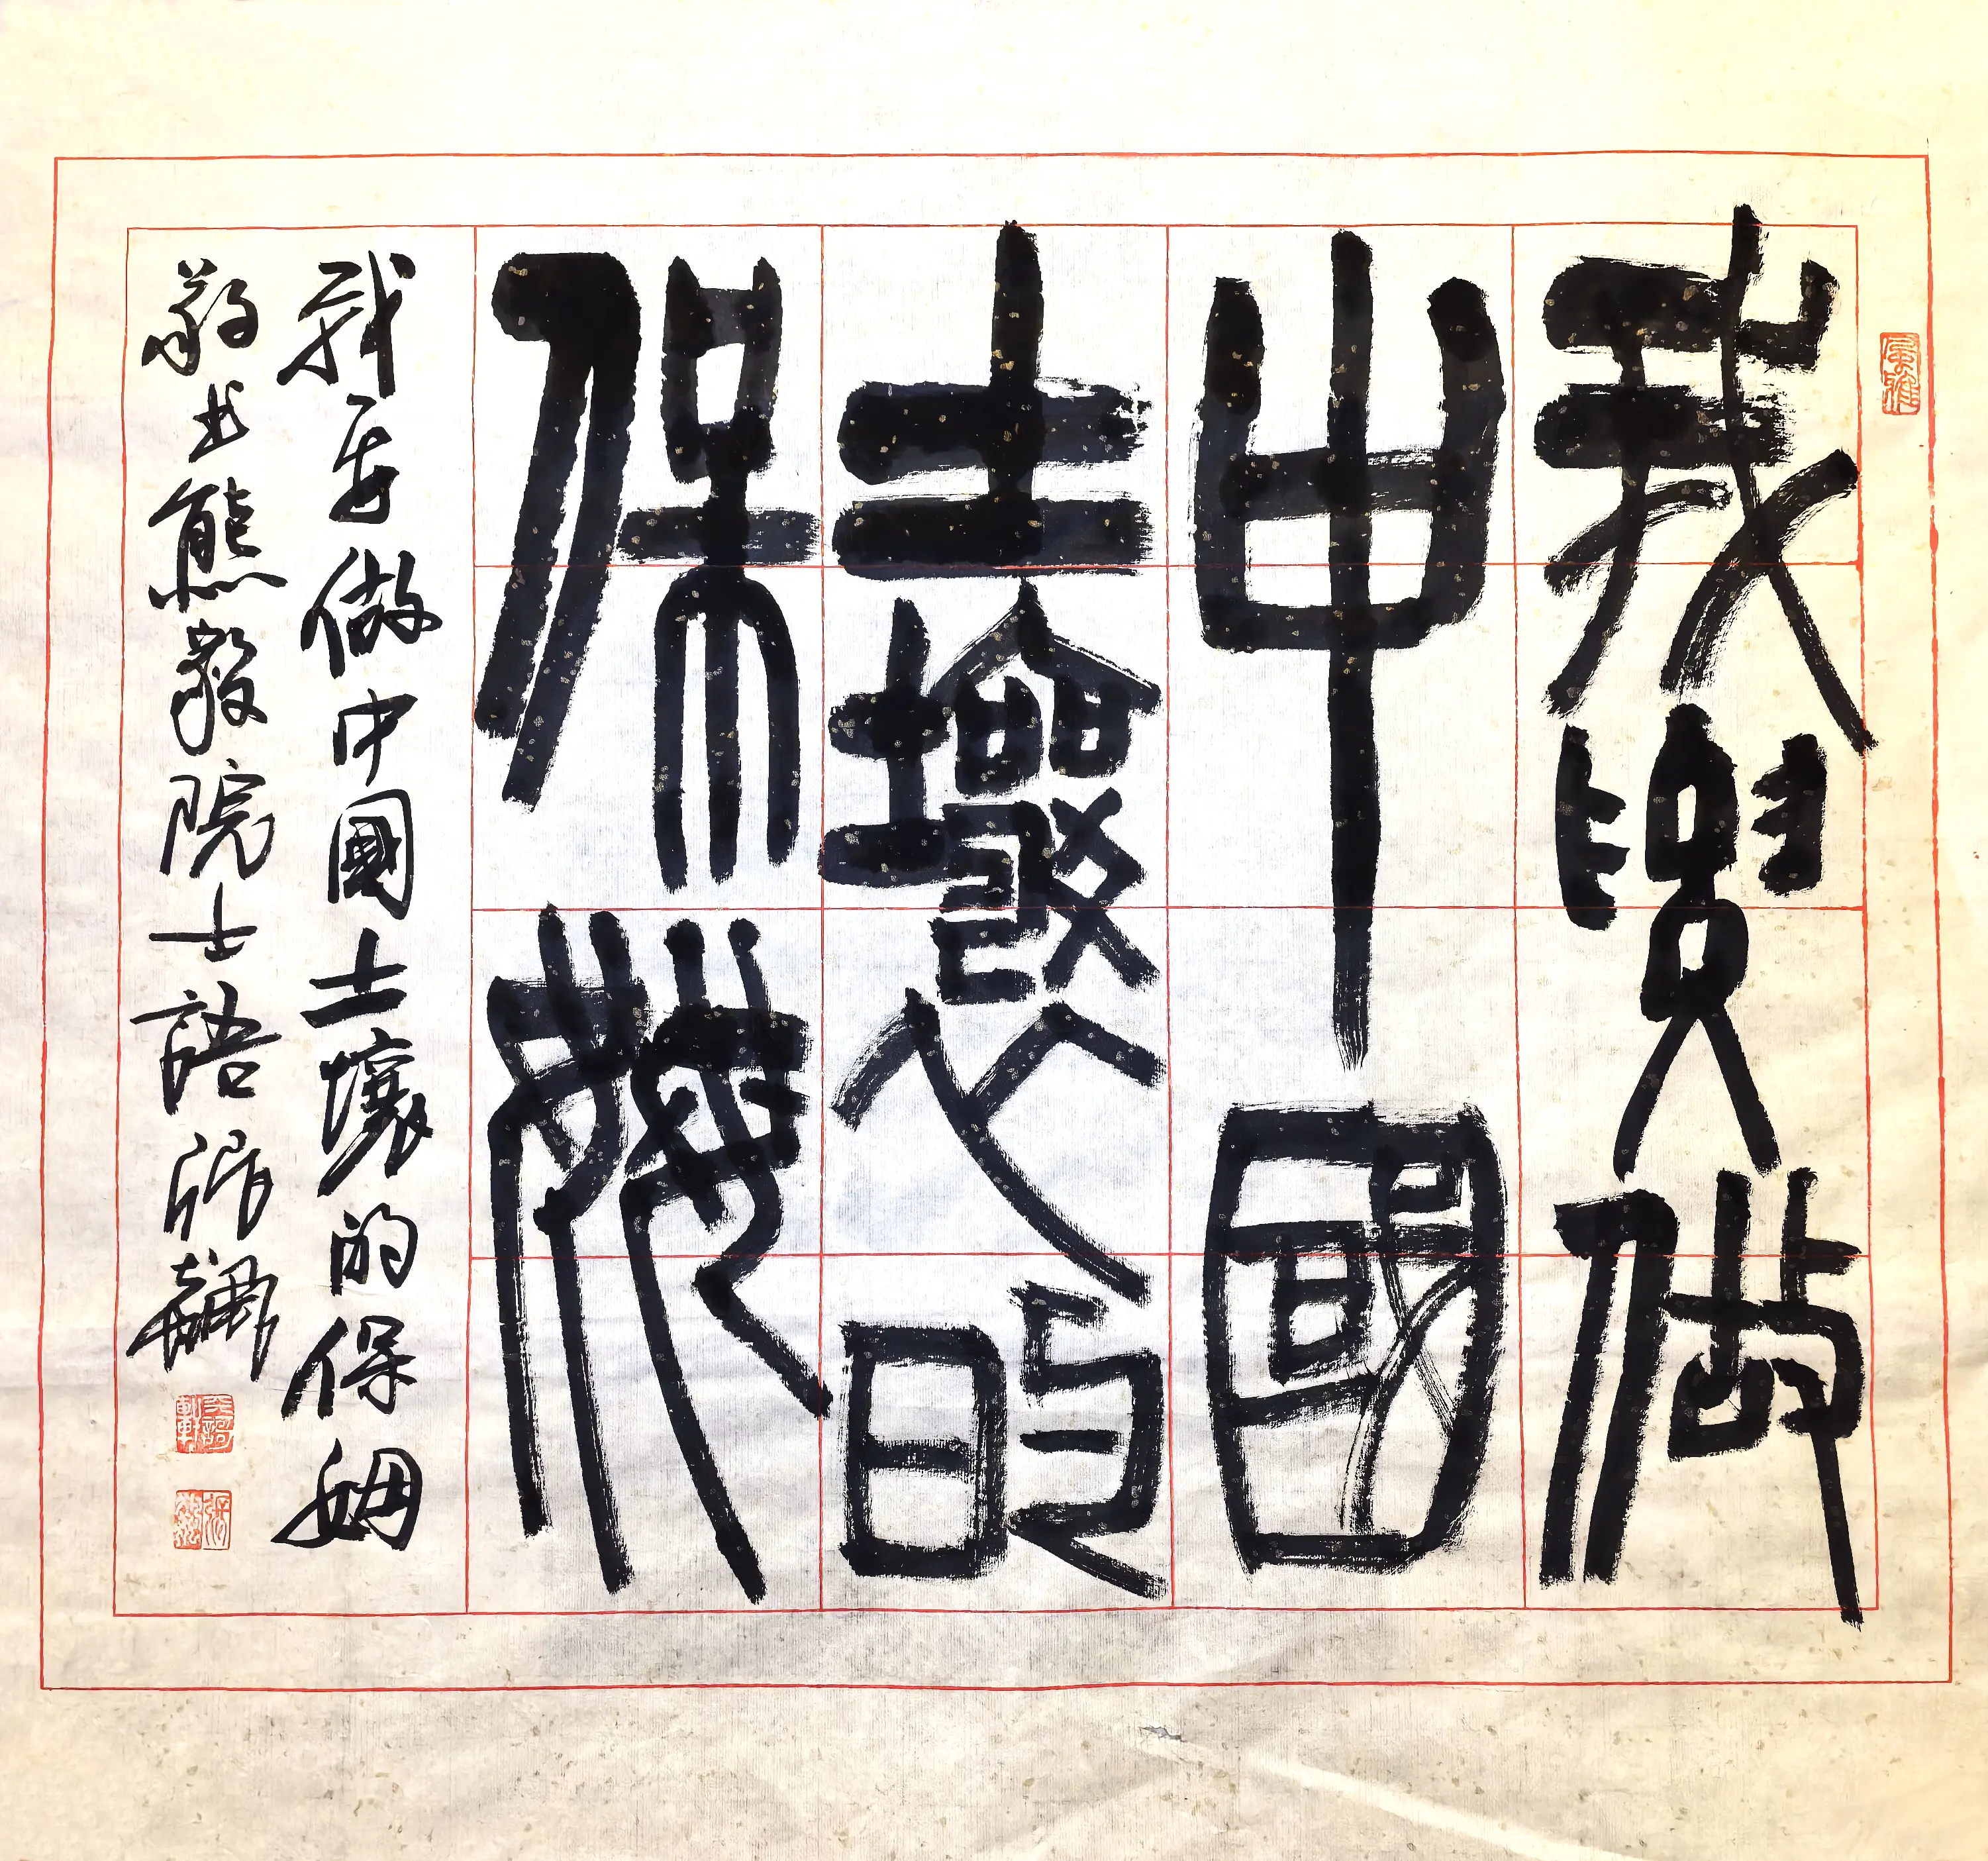 我要做
中國
土壤的
保姆
我要做中國土壤的保姆
敬书熊毅院士語